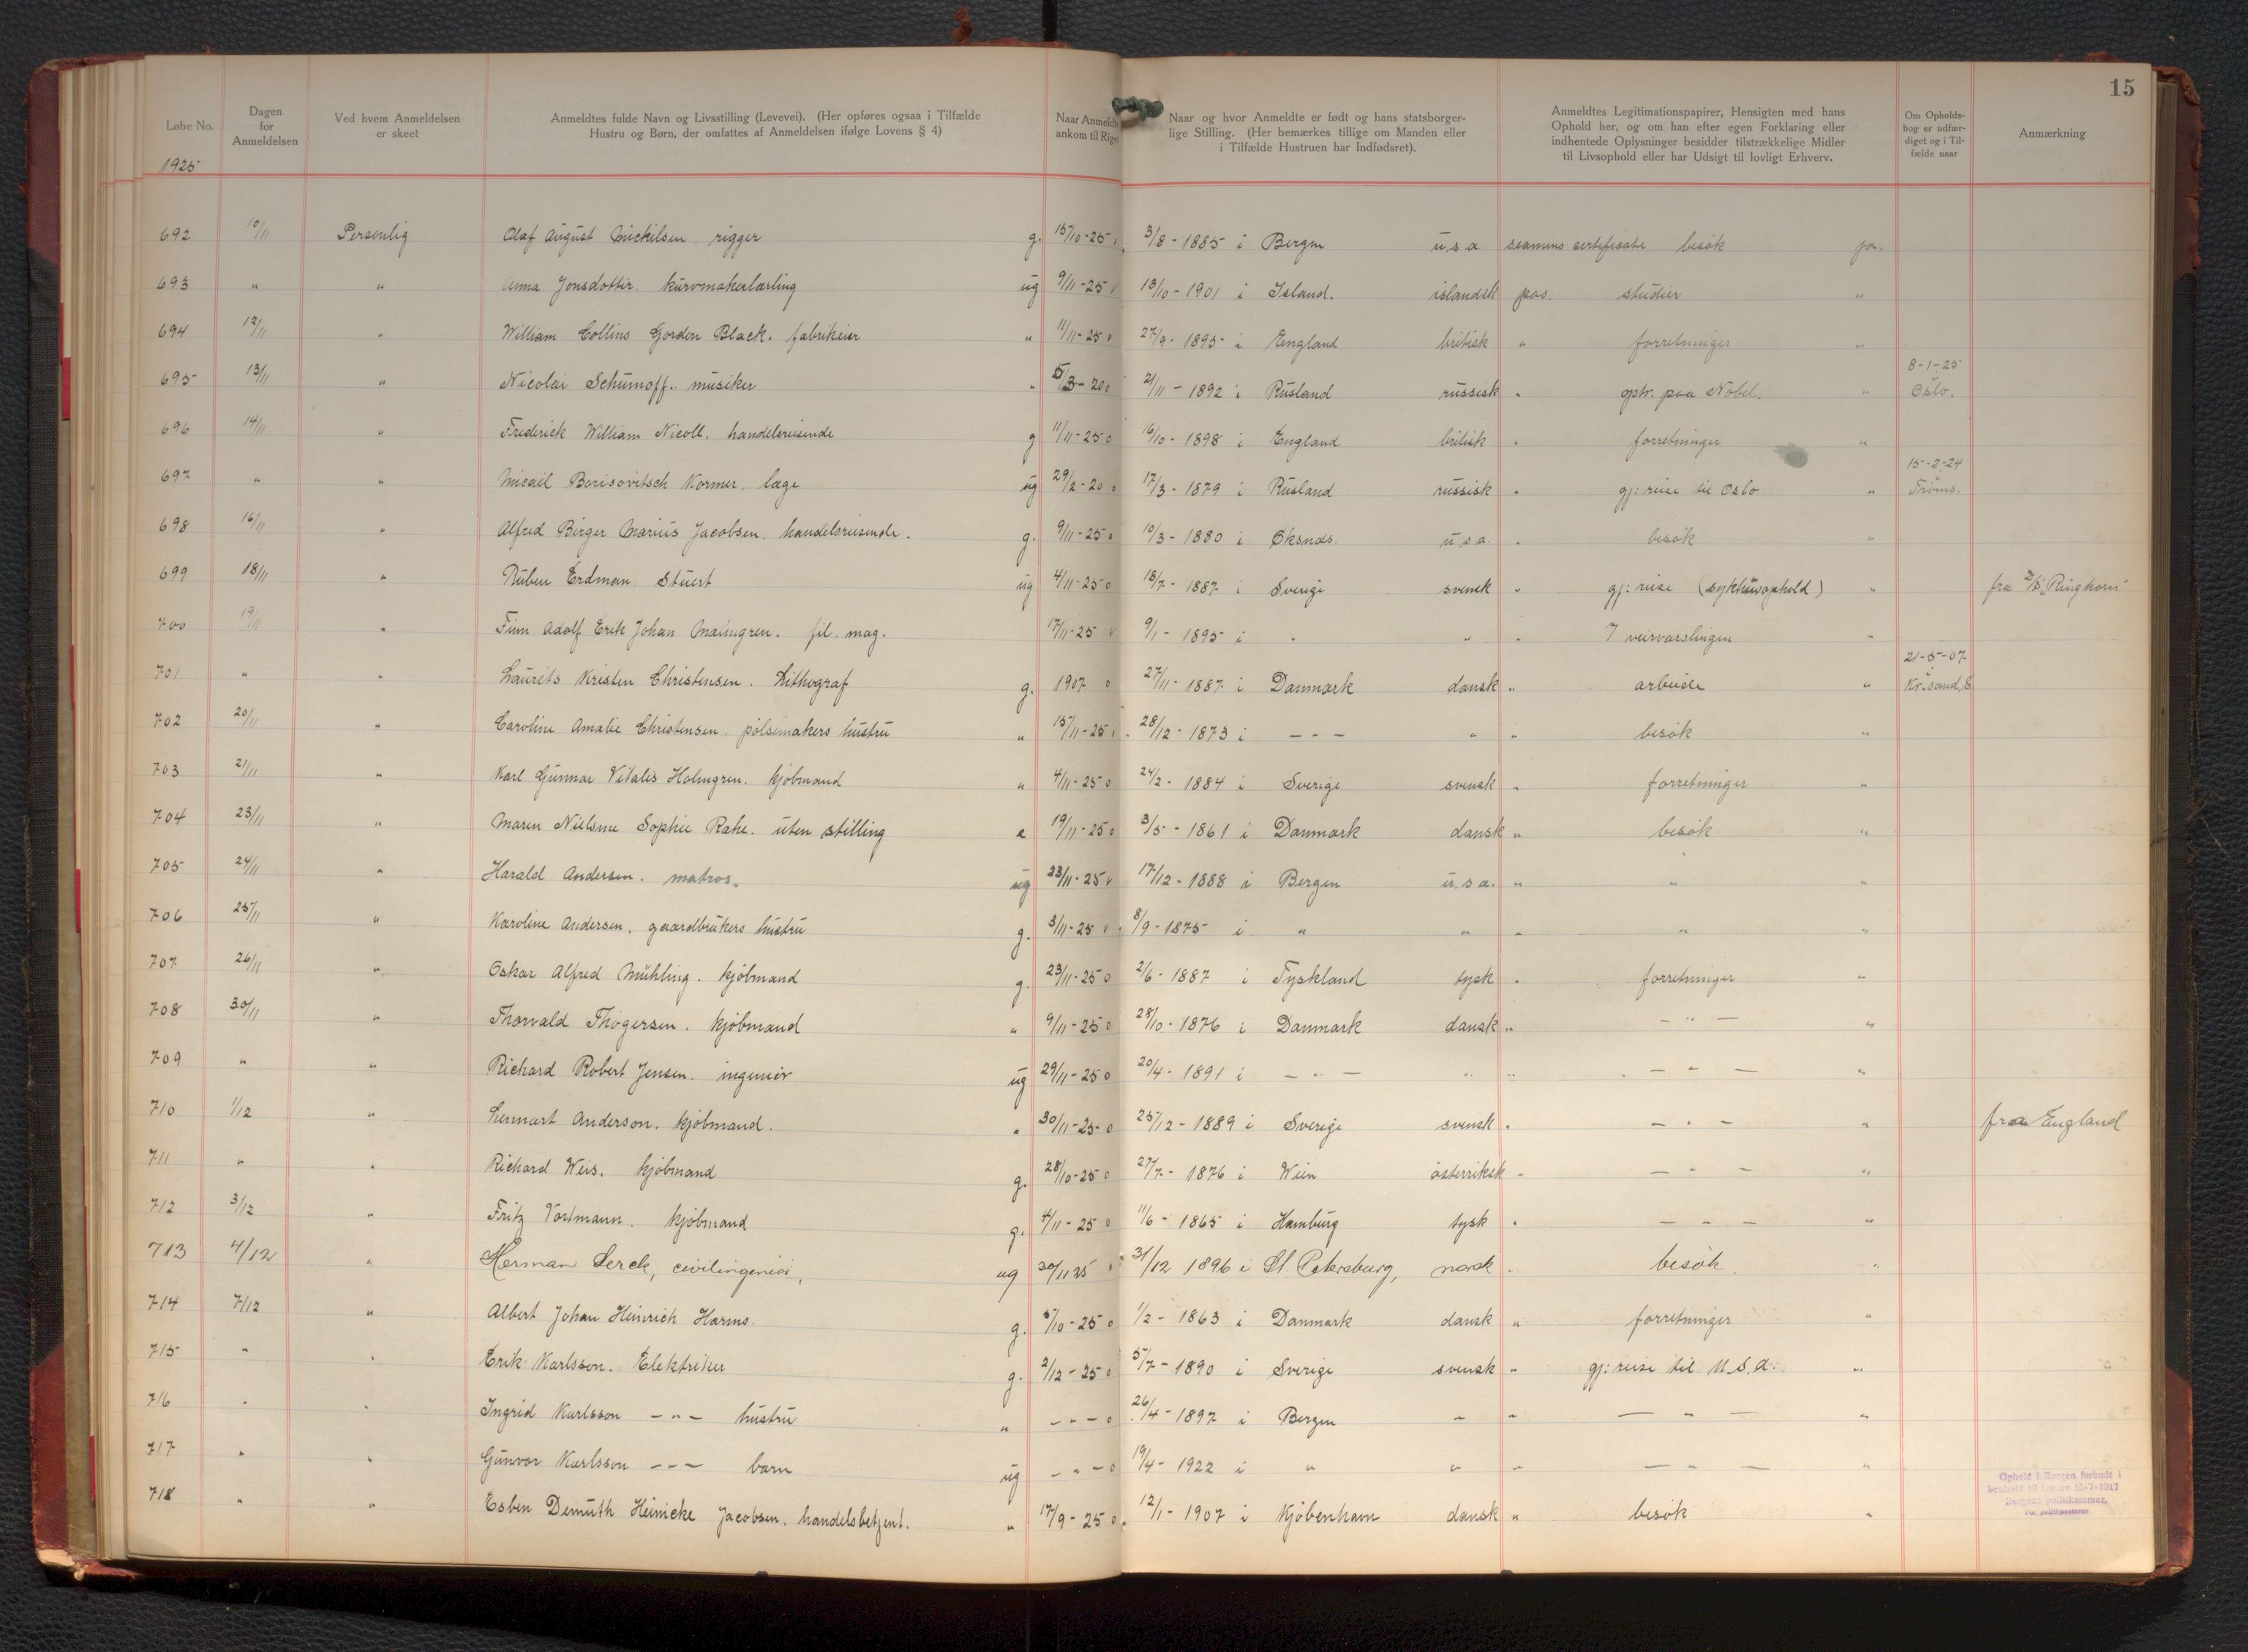 15
Løbe No. Dagen for Anmeldelsen Ved hvem Anmeldelsen er skeet Anmeldtes fulde Navn og Livsstilling (Levevei). (Her opføres ogsaa i Tilfælde Hustru og Børn, der omfattes af Anmeldelsen ifølge Lovens § 4) Naar Anmeldte ankom til Riget Naar og hvor Anmeldte er født og hans statsborgerlige Stilling. (Her bemærkes tillige om Manden eller i Tilfælde Hustruen har Indfødsret). Anmeldtes Legitimationspapirer, Hensigten med hans Ophold her, og om han efter egen Forklaring eller indhentede Oplysninger besidder tilstrækkelige Midler til Livsophold eller har Udsigt til lovligt Erhverv. Om Opholdsbog er udfærdiget og i Tilfælde naar Anmærkning
1925
692 10/11 Personlig Olaf August Mickilsen. rigger g. 15/10-25 v 3/8-1885 i Bergen u.s.a seamens certificate besök ja.
693 " " Anna Jonsdottir. kurvmakerlærling ug 9/11-25 v 13/10-1901 i Island. islandsk pas. studier "
694 12/11 " William Collins Gordon Black. fabrikeier " 11/11-25 v 27/9-1895 i England britisk " forretninger "
695 13/11 " Nicolai Schumoff. musiker " 5/3-20 o 21/11-1892 i Rusland russisk " optr. paa Nobel. " 8-1-25 Oslo.
696 14/11 " Frederick William Nicoll. handelsreisende g 11/11-25 o 16/10-1898 i England britisk " forretninger "
697 " " Micail Borisovitsch Kormer, læge ug 29/2-20 o 17/3-1879 i Rusland russisk " gj: reise til Oslo " 15-2-24 Troms.
698 16/11 " Alfred Birger Marius Jacobsen. handelsreisende. g. 9/11-25 o 10/3-1880 i Øksnæs. u.s.a. " besök "
699 18/11 " Ruben Erdman Stuert ug 4/11-25 o 18/7-1887 i Sverige svensk " gj: reise (sykehusophold) " fra D/S "Ringhorn"
700 19/11 " Finn Adolf Erik Johan Malmgren. fil. mag. 17/11-25 v 9/1-1895 i " " " 7 veirvarslingen "
701 " " Laurits Kristen Christensen. Lithograf g. 1907 o 27/11-1887 i Danmark dansk " arbeide " 21-5-07 Kr.sand S
702 20/11 " Caroline Amalie Christensen, pölsemakers hustru " 15/11-25 v 28/12-1873 i - " - " " besök "
703 21/11 " Karl Gunnar Vitalis Holmgren. kjöbmand " 4/11-25 o 24/2-1884 i Sverige svensk " forretninger "
704 23/11 " Maren Nielsine Sophie Rahe. uten stilling e 19/11-25 o 3/5-1861 i Danmark dansk " besök "
705 24/11 " Harald Andersen. matros. ug 23/11-25 v 17/12-1888 i Bergen u.s.a. " " "
706 25/11 " Karoline Andersen, gaardbrukers hustru g. 3/11-25 v 8/9-1875 i " " " " "
707 26/11 " Oskar Alfred Mühling. kjöbmand g. 23/11-25 o 2/6-1887 i Tyskland tysk " forretninger "
708 30/11 " Thorvald Thögersen. kjöbmand " 9/11-25 o 28/10-1876 i Danmark dansk " - " - "
709 " " Richard Robert Jensen. ingeniör ug 29/11-25 o 20/4-1891 i - " - " " - " - "
710 1/12 " Lennart Anderson. kjöbmand. " 30/11-25 o 25/12-1889 i Sverige svensk " - " - " fra England
711 " " Richard Weis. kjöbmand g. 28/10-25 o 27/7-1876 i Wien österriksk " - " - "
712 3/12 " Fritz Vortmann. kjöbmand g. 4/11-25 o 11/6-1865 i Hamburg tysk " - " - "
713 4/12 " Herman Lerck, civilingeniör, ug 30/11 25 v 31/12 1896 i St. Petersburg, norsk " besök "
714 7/12 " Albert Johan Heinrich Harms. g. 5/10-25 o 1/2-1863 i Danmark dansk " forretninger "
715 " " Erik Karlsson. Elektriker g. 2/12-25 o 5/7-1890 i Sverige svensk " gj: reise til U.S.A. "
716 " " Ingrid Karlsson - " - hustru " - " - o 26/4-1897 i Bergen " " - " - "
717 " " Gunvor Karlsson - " - barn ug - " - o 19/4-1922 i " " " - " - "
718 " " Esben Demuth Heinicke Jacobsen. handelsbetjent. " 17/9-25 o 12/1-1907 i Kjöbenhavn dansk " besök "
Ophold i Bergen forbudt i
henhold til lov av 13-7-1917
Bergens politikammer.
For politimesteren